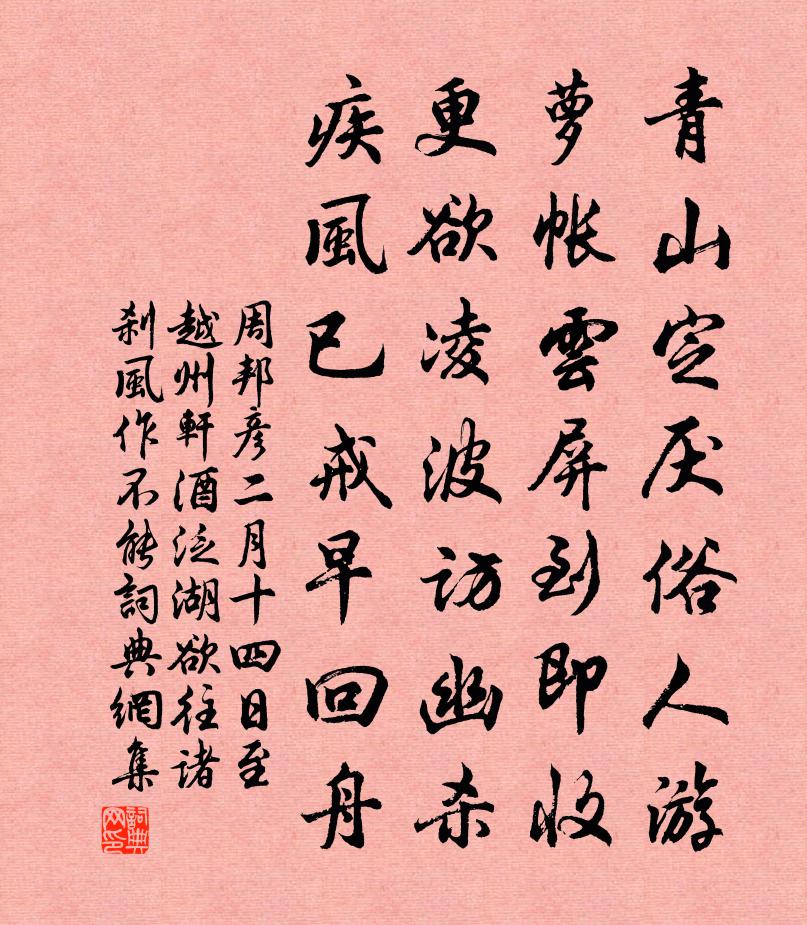 青山定厌俗人游
萝帐雲屏到即收
更欲凌波访幽杀
疾風已戒早回舟
周邦彦二月十四日至
越州軒酒泛湖欲往諸
剎風作不能詞典網集
詞典网印